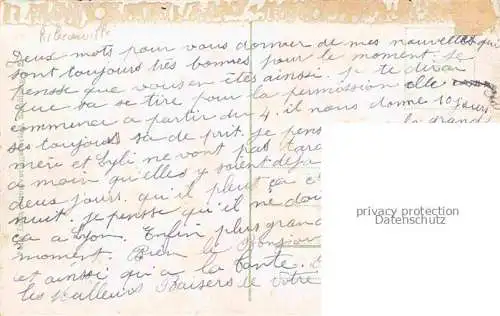 Ribeauvillé
Deux mots pour vous donner de mes nouvelles qui
sont toujours très bonnes pour le moment. Je
pensse que vous en êtes ainssi. Je te dirai
que sa se tire pour la permission elle
commence a partir du 4. il nous donne 10 jours
ses toujours sa de prit. Je pens la grand
mère et Lyli ne vont pas tard
a moin qu'elles y soient deja
deux jours. qu'il pleut ça c
nuit. Je pensse qu'il ne do
ça a Lyon. Enfin plus gran
moment. Bien le Bonjour
et ainssi qu'a la tante.
les meilleurs Baisers de vôtre
privacy protection
Datenschutz